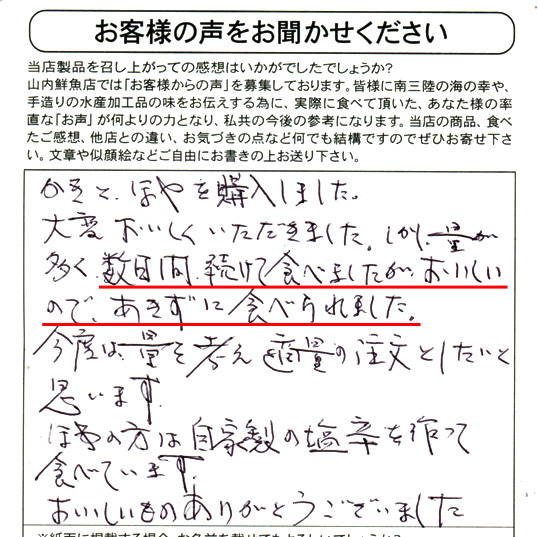 お客様の声をお聞かせください
当店製品を召し上がっての感想はいかがでしたでしょうか?
山内鮮魚店では「お客様からの声」を募集しております。皆様に南三陸の海の幸や、
手造りの水産加工品の味をお伝えする為に、実際に食べて頂いた、あなた様の率
直な「お声」が何よりの力となり、私共の今後の参考になります。当店の商品、食べ
たご感想、他店との違い、お気づきの点など何でも結構ですのでぜひお寄せ下さ
い。文章や似顔絵などご自由にお書きの上お送り下さい。
かきと、ほやを購入しました。
大変おいしくいただきました。しかし、量が
多く、数日間、続けて食べましたが、おいしい
ので、あきずに食べられました。
今度は、量を考え適量の注文としたいと
思います。
ほやの方は自家製の塩辛を作って
食べています。
おいしいものありがとうございました